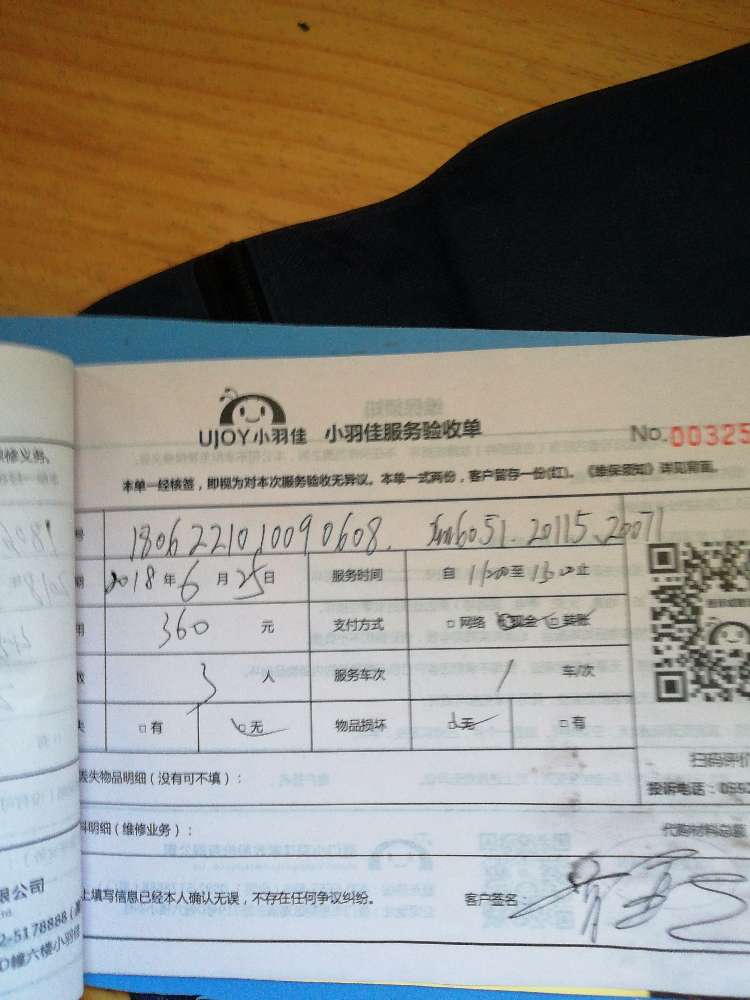 UJOY小羽佳 小羽佳服务验收单 No.00325
本单一经核签，即视为对本次服务验收无异议。本单一式两份，客户留存一份(红)。《维保须知》详见背面。
180622101009 0608. 6051.20115、20071
2018年6月25日 服务时间 自 至 止
360 元 支付方式 □网络 □现金 □转账
3 人 服务车次 1 车/次
□有 □无 物品损坏 □无 □有
扫码评价
丢失物品明细（没有可不填）： 投诉电话：0592
料明细（维修业务）： 代购材料总额
上填写信息已经本人确认无误，不存在任何争议纠纷。 客户签名
修义务、
限公司
2-5178888
D幢六楼小羽佳